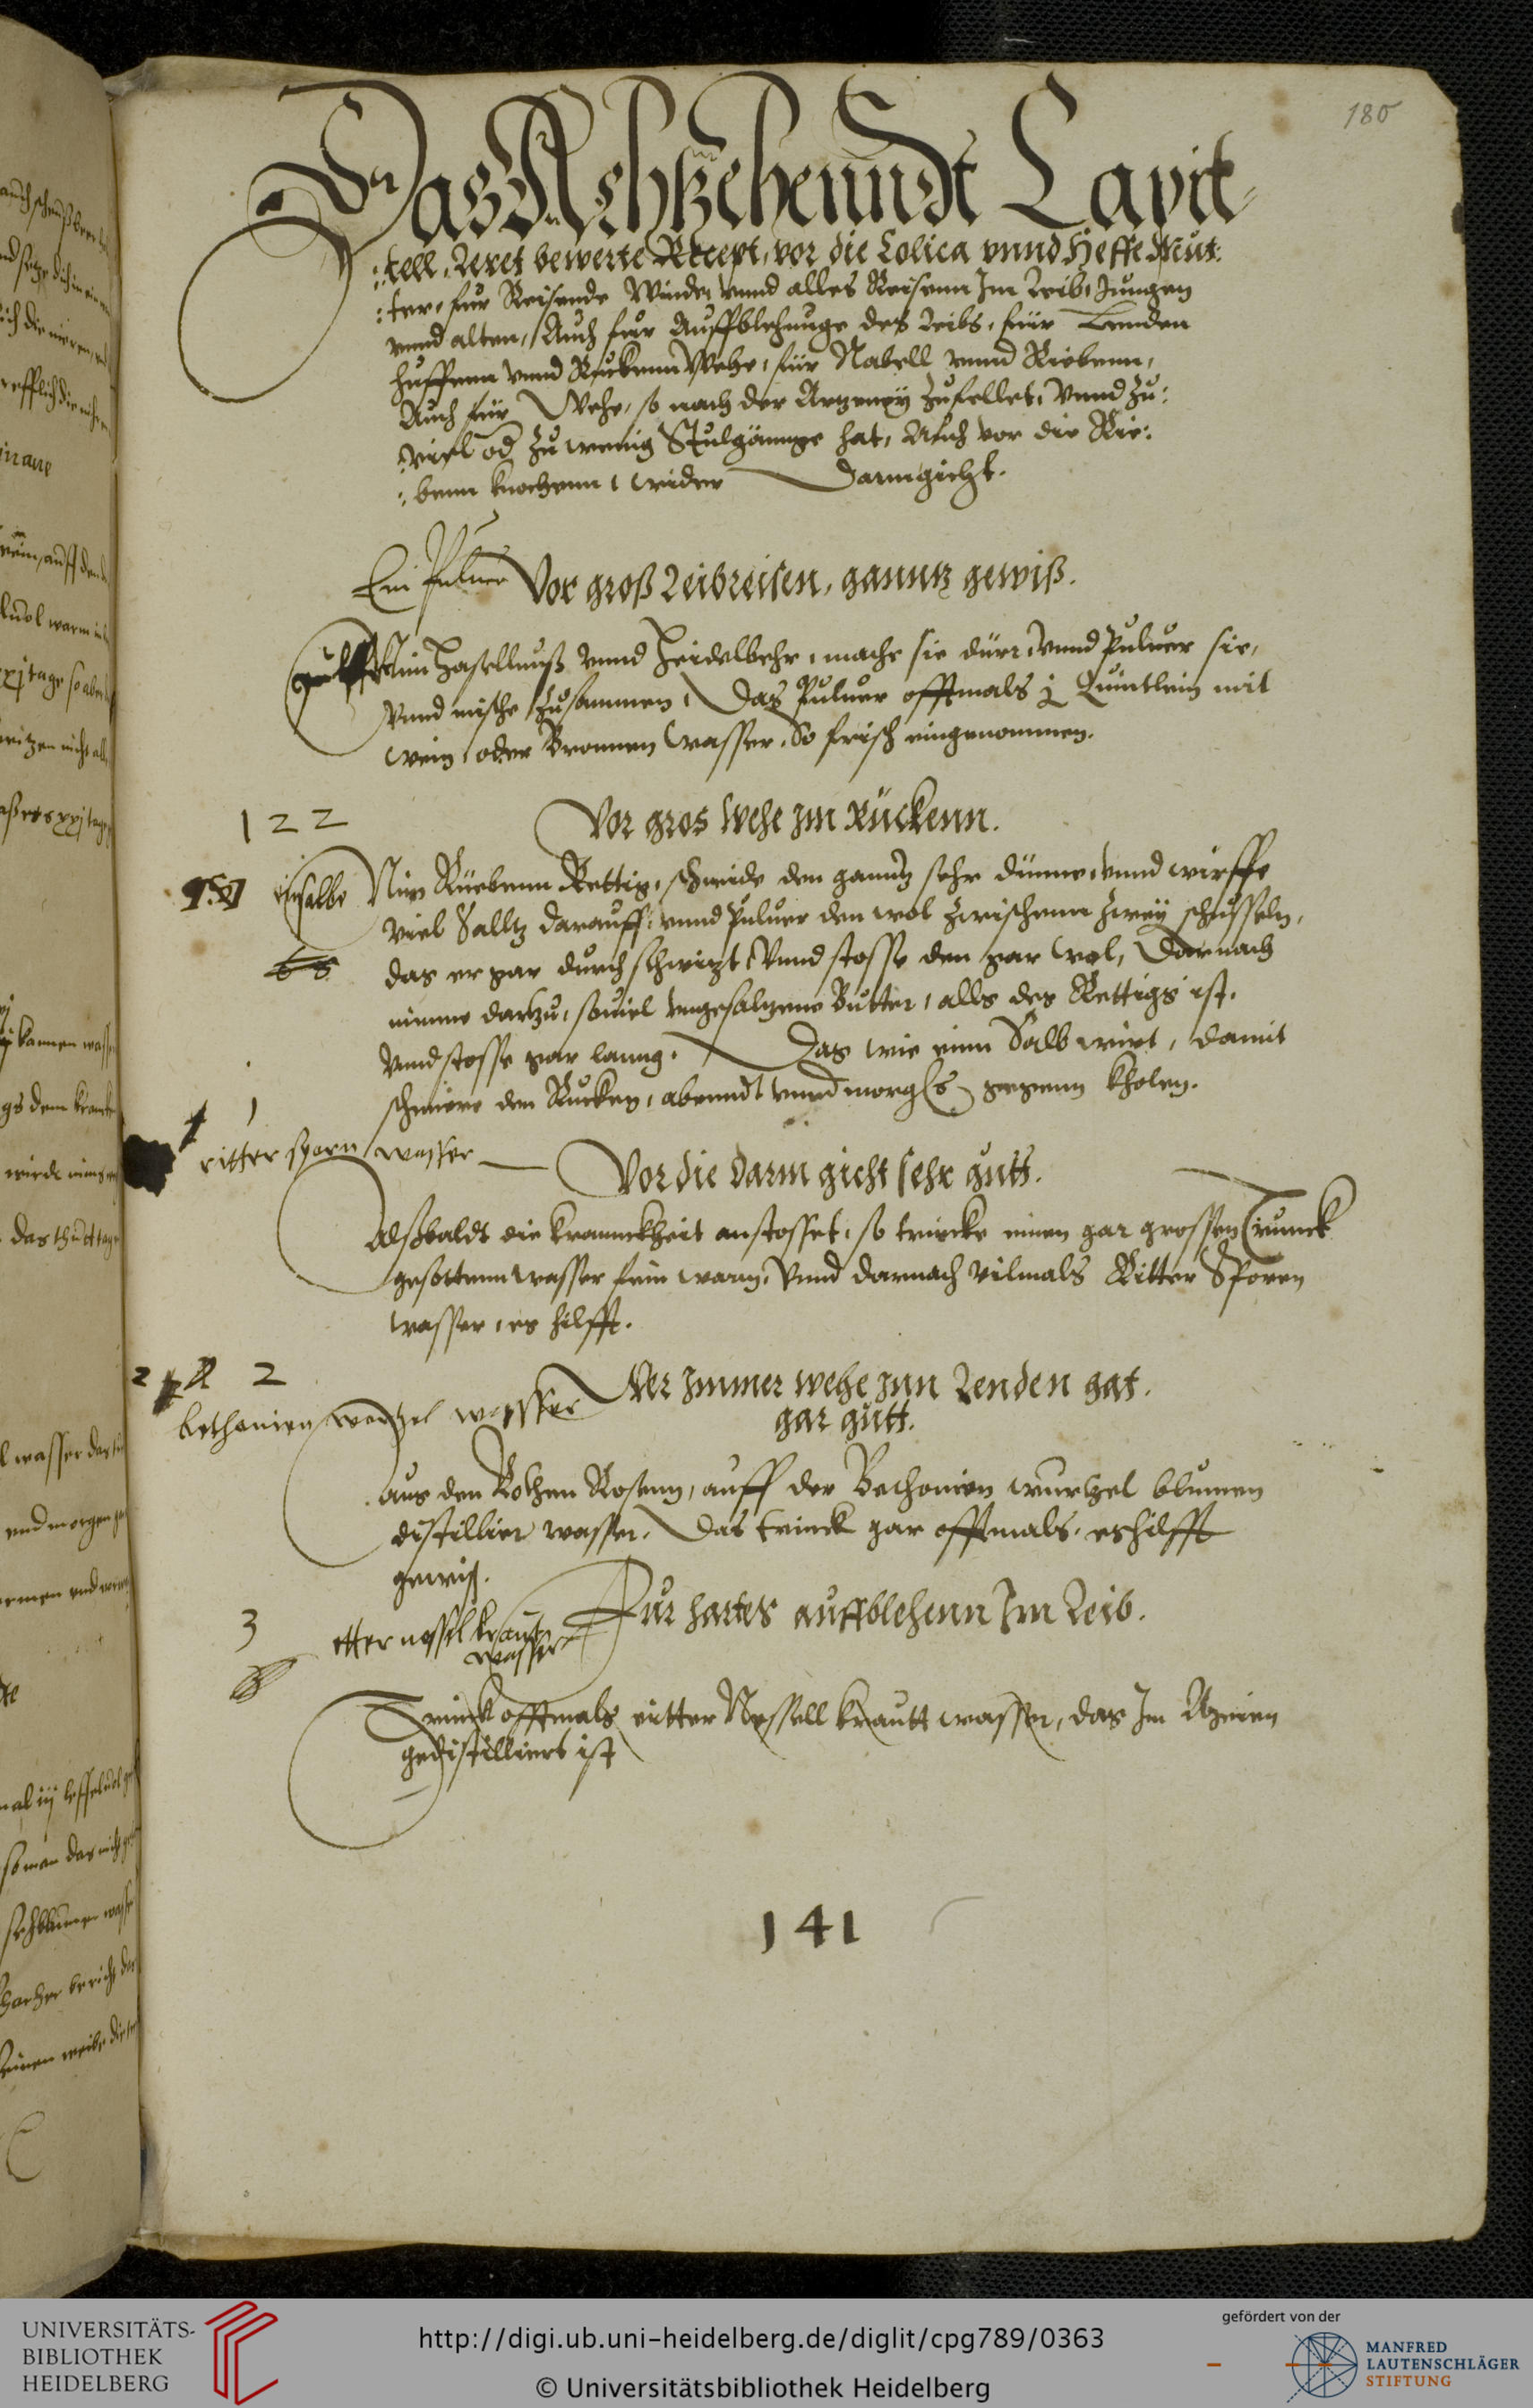 180
Das Achtzehenndt Capit-
:tell, Leret bewerte Recept, vor die Colica vnnd Heffe Mut:
:ter, fur Reisende Winde, vnnd alles Reisenn Im Leib, Jungen
vnnd alten, Auch fur Auffblehunge des Leibs, für Lenden
huffenn vnnd Ruckenn Wehe, für Nabell vnnd Riebenn,
Auch für Wehe, so nach der Artzeney zufellet, Vnnd zu:
:viel od zu wenig Stulgännge hat, Auch vor die Rie:
:benn knochenn, wider Darmgicht.
Ein Puluer Vor groß Leibreisen, ganntz gewiß.
Nim Haselnuß vnnd Heidelbehr, mache sie dürr, vnnd Puluer sie,
Vnnd mische zusammen, Das Puluer offtmals j Quintlein mit
wein, oder Bronnen wasser, So frisch eingenommen.
122
Vor gros wehe jm Rückenn.
salbe Nim Rüebenn Rettig, schneide den ganntz sehr dünne, vnnd wirffe
viel Salltz darauff, vnnd Puluer den wol zwischenn zwey schusseln,
das er gar durch schwitzt, Vnnd stosse den gar wol, Darnach
nimme dartzu, souiel vngesaltzene Butter, alls des Rettigs ist,
Vnnd stosse gar lanng. Das wie einn Salb wirt, damit
schmiere den Rucken, abenndt vnnd morgs gegenn kholen.
1
ritter sporn wasser
Vor die darm gicht sehr gutt.
Alßbaldt die krannckheit anstosset, so trincke einen gar grossen Trunck
gesottenn wasser fein warm, Vnnd darnach vilmals Ritter Sporen
wasser, es hilfft.
2 2
bethonien wortzel wasser
Wer jmmer wehe jnn Lenden hat.
gar gutt.
aus den Rothen Rosenn, auff der Bethonien wurtzel blumen
distillier wasser. Das trinck gar offtmals, es hilfft
gewiß.
3
etter nessel kraut
wasser
Fur hartes auffblehenn Im Leib.
Trinck offtmals eitter Nessell krautt wasser, das Im
gedistilliert ist
141
UNIVERSITÄTS-
BIBLIOTHEK
HEIDELBERG
http://digi.ub.uni-heidelberg.de/diglit/cpg789/0363
© Universitätsbibliothek Heidelberg
gefördert von der
MANFRED
LAUTENSCHLÄGER
STIFTUNG